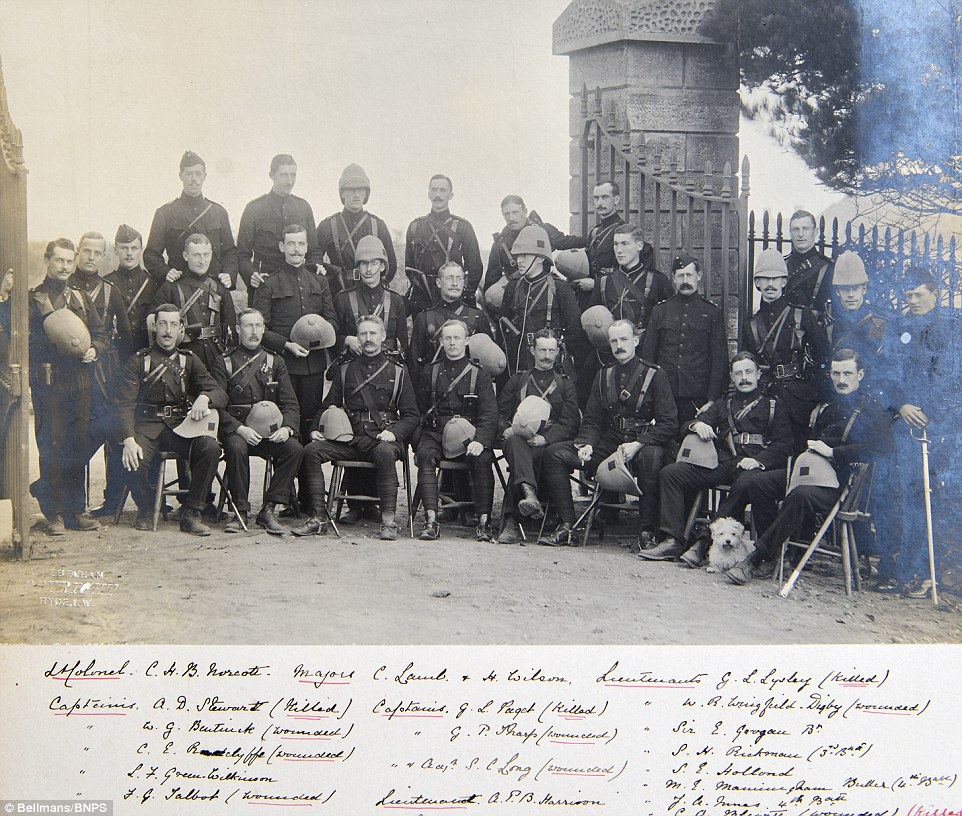 DEBENHAM
RYDE. I.W.
Lt Colonel. C. H. B. Norcott. Majors C. Lamb. & H. Wilson, Lieutenants G. L. Lysley (Killed)
Captains. A. D. Stewart (Killed) Captains. G. L. Paget (Killed) " W. R. Wingfield-Digby (wounded)
" W. G. Bentinck (wounded) " G. P. Tharp (wounded) " Sir E. Googan Bt
" C. E. Radclyffe (wounded) " & Adjt. S. C. Long (wounded) " S. H. Rickman (3rd Batt)
" L. F. Green-Wilkinson " S. E. Holland
" F. G. Talbot (wounded) Lieutenant A. P. B. Harrison " M. E. Manningham Buller (4th Batt)
" J. A. Innes. 4th Batt
(wounded) (Killed
© Bellmans/BNPS